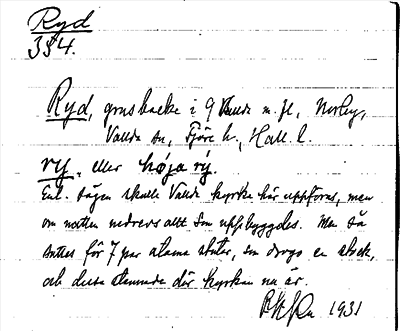 Ryd
334.
Ryd, grusbacke i 9 Valda m. fl,
Valda sn, Fjäre h., Hall. l.
ry, eller høja rý.
Enl. sägen skulle Valda kyrka här uppföras, men
om natten nedrevs allt som uppbyggdes. Men så
sattes för 7 par stutar, som drogo en stock,
och dessa stannade där kyrkan nu är.
1931